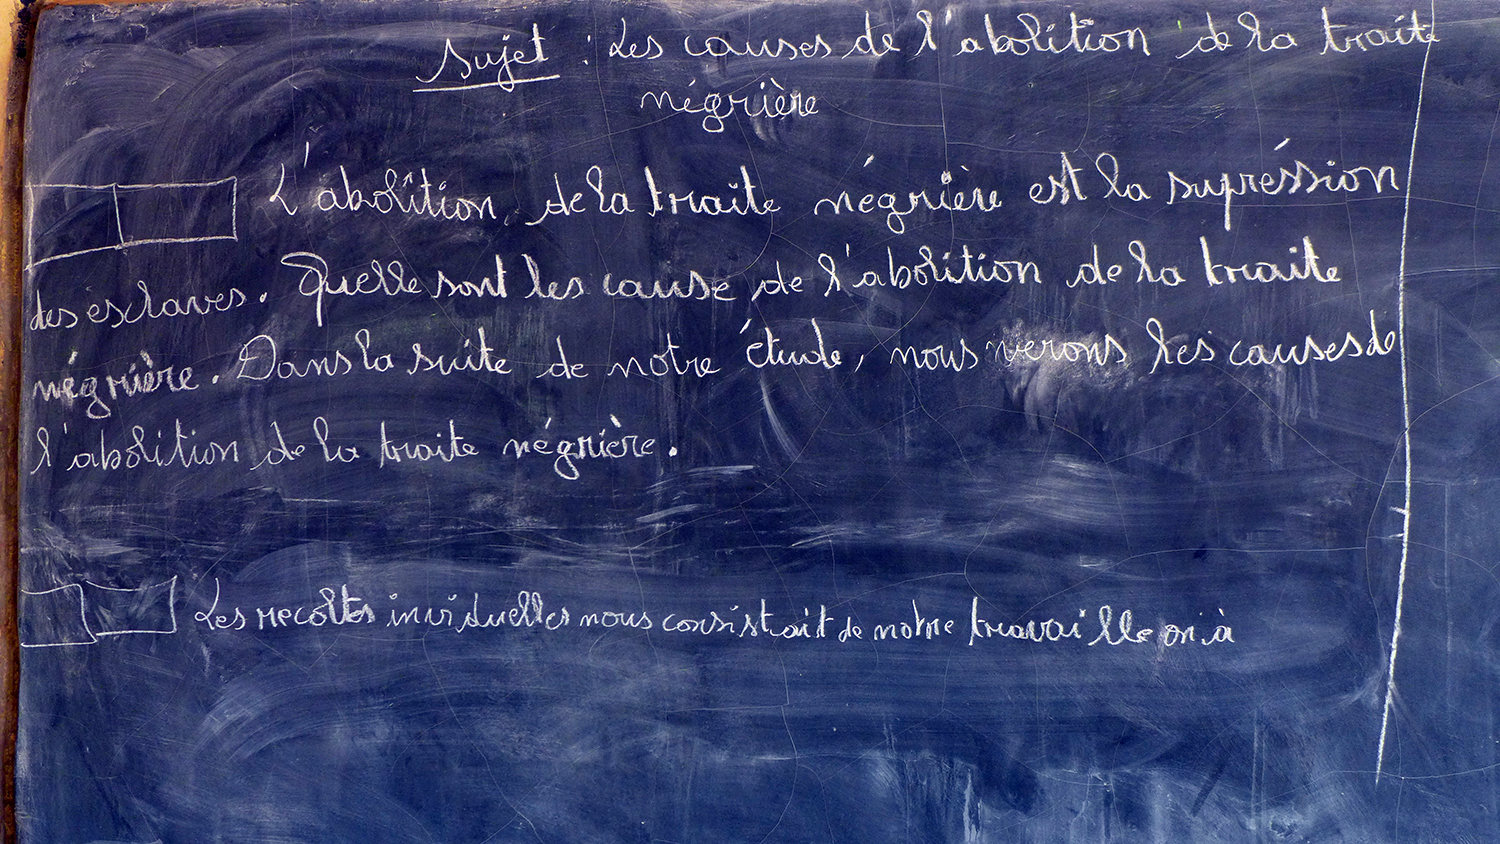 Sujet : Les causes de l'abolition de la traite
négrière
L'abolîtion de la traite négrière est la supréssion
des esclaves. Quelle sont les cause de l'abolition de la traite
négrière. Dans la suite de notre étude, nous verons les causes de
l'abolition de la traite négrière.
Les recoltes inviduelles nous consistrait de notre travaille on à